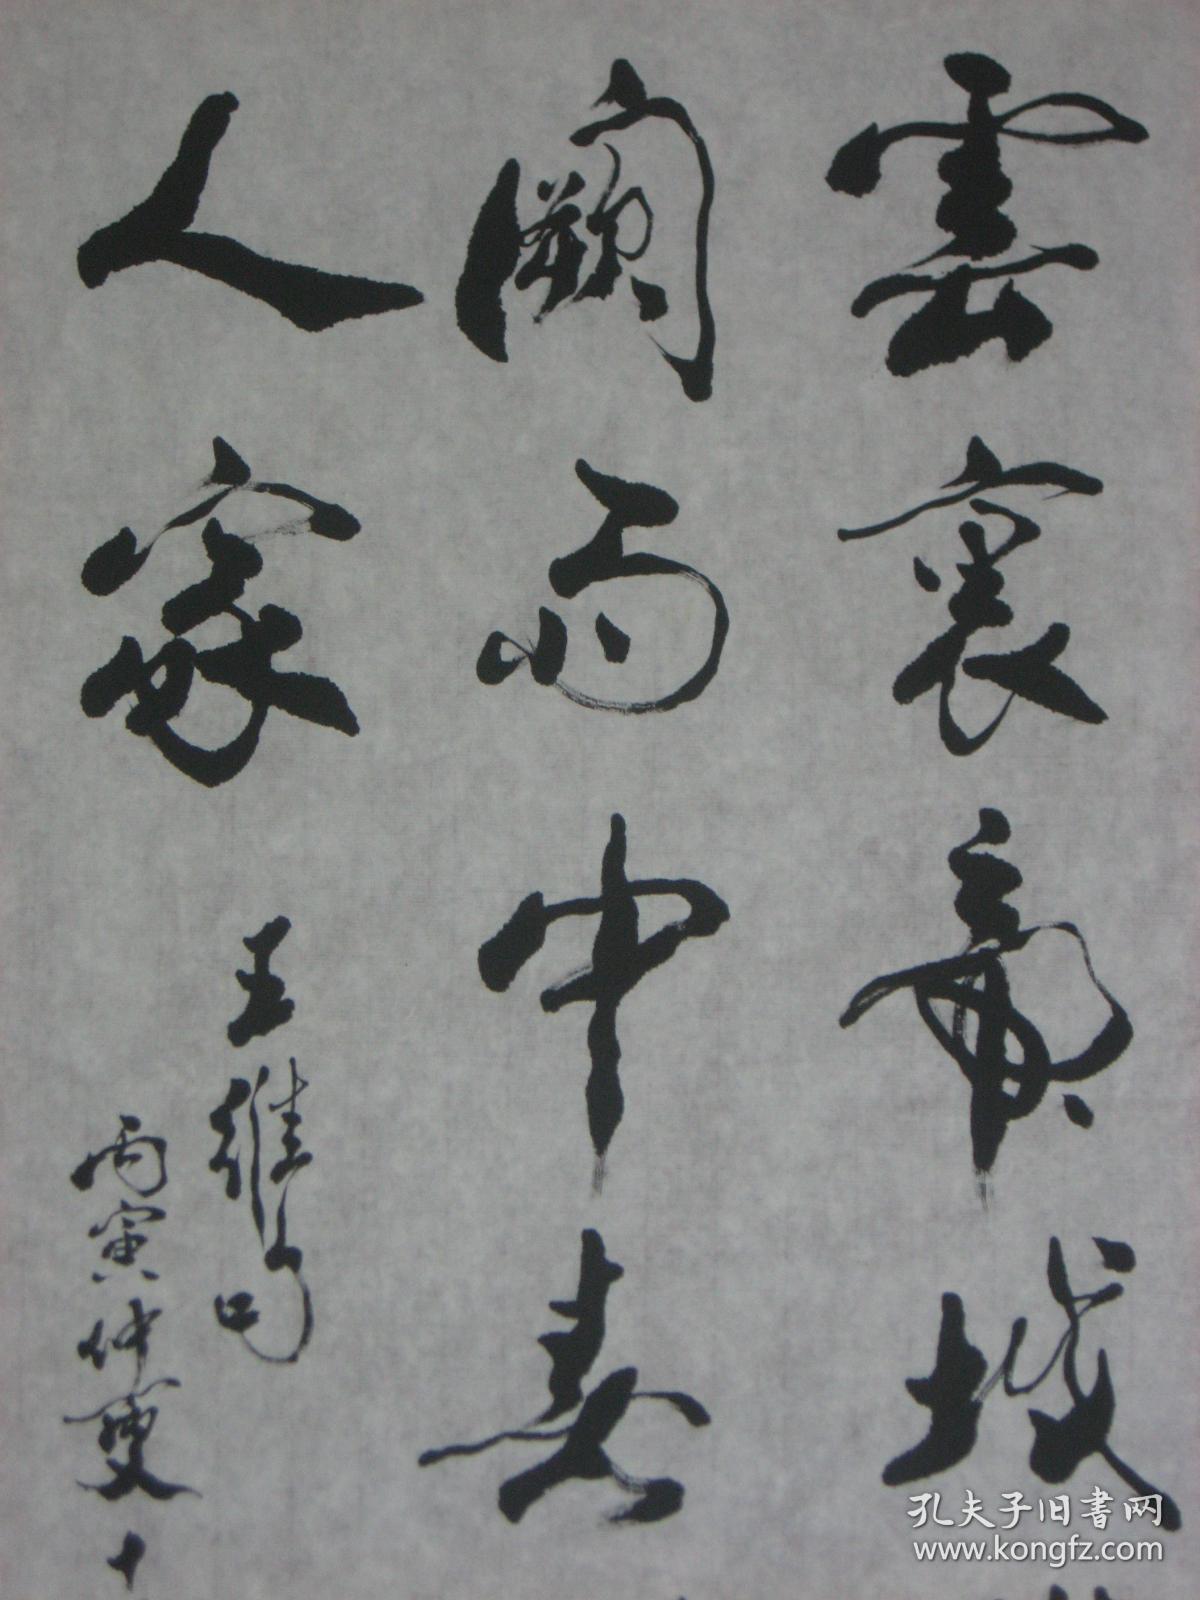 雲裏帝城
闕雨中春
人家
王維句
丙寅仲夏十
孔夫子旧书网
www.kongfz.com